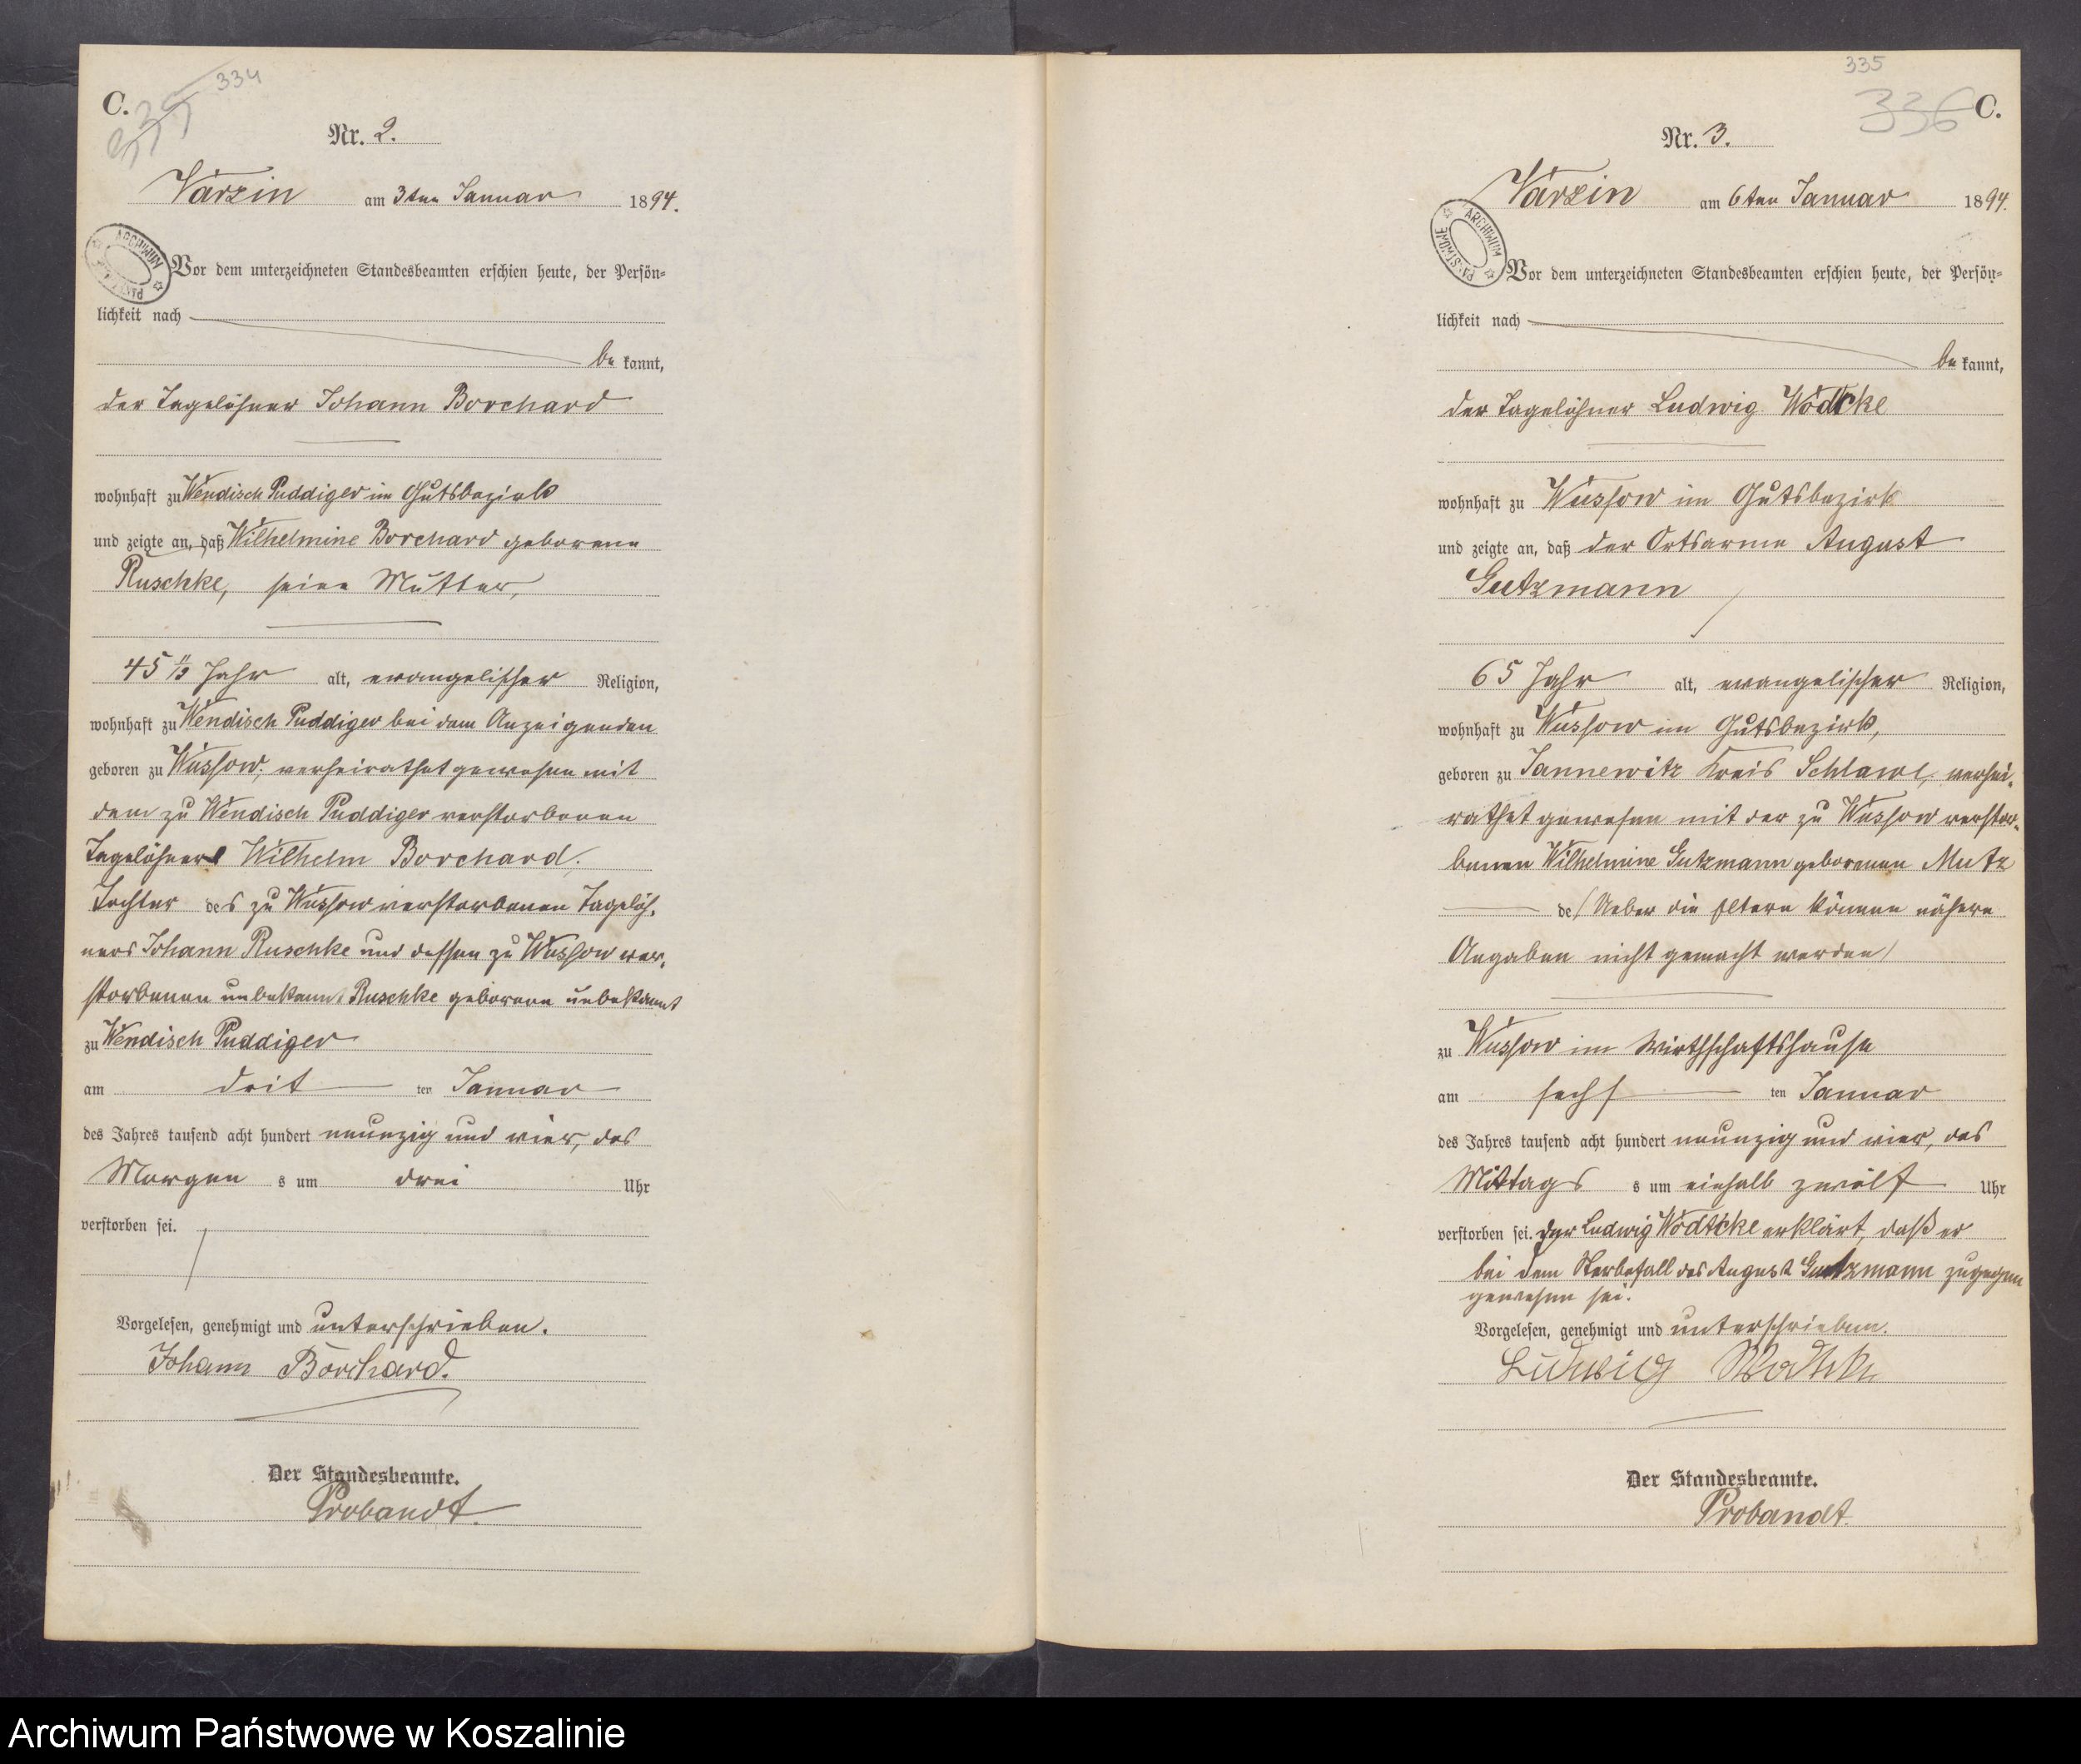 C.
334
Nr. 2.
Varzin am 3ten Januar 1894.
Vor dem unterzeichneten Standesbeamten erschien heute, der Persön-
lichkeit nach
be kannt,
der Tagelöhner Johann Borchard
wohnhaft zu Wendisch Puddiger im Gutsbezirk
und zeigte an, daß Wilhelmine Borchard geborene
Ruschke, seine Mutter,
45 Jahr alt, evangelischer Religion,
wohnhaft zu Wendisch Puddiger bei dem Anzeigenden
geboren zu Wussow, verheirathet gewesen mit
dem zu Wendisch Puddiger verstorbenen
Tagelöhner Wilhelm Borchard.
Tochter des zu Wussow verstorbenen Tagelöh-
ners Johann Ruschke und dessen zu Wussow ver-
storbenen unbekannt Ruschke geborene unbekannt
zu Wendisch Puddiger
am dritten Januar
des Jahres tausend acht hundert neunzig und vier, des
Morgens um drei Uhr
verstorben sei.
Vorgelesen, genehmigt und unterschrieben.
Johann Borchard.
Der Standesbeamte.
Probandt.
335
336
C.
Nr. 3.
Varzin am 6ten Januar 1894.
ARCHIWUM PAŃSTWOWE
Vor dem unterzeichneten Standesbeamten erschien heute, der Persön-
lichkeit nach
be kannt,
der Tagelöhner Ludwig Wödtcke
wohnhaft zu Wussow im Gutsbezirk
und zeigte an, daß der Ortsarme August
Gutzmann
65 Jahr alt, evangelischer Religion,
wohnhaft zu Wussow im Gutsbezirk,
geboren zu Jannewitz Kreis Schlawe, verhei-
rathet gewesen mit der zu Wussow verstor-
benen Wilhelmine Gutzmann geborenen Mutz
de (Ueber die Eltern können nähere
Angaben nicht gemacht werden)
zu Wussow im Wirthschaftshause
am sechsten Januar
des Jahres tausend acht hundert neunzig und vier, des
Mittags s um einhalb zwölf Uhr
verstorben sei. Der Ludwig Wödtcke erklärt, daß er
bei dem Sterbefall des August Gutzmann zugegen
gewesen sei.
Vorgelesen, genehmigt und unterschrieben.
Ludwig
Der Standesbeamte.
Probandt.
Archiwum Państwowe w Koszalinie